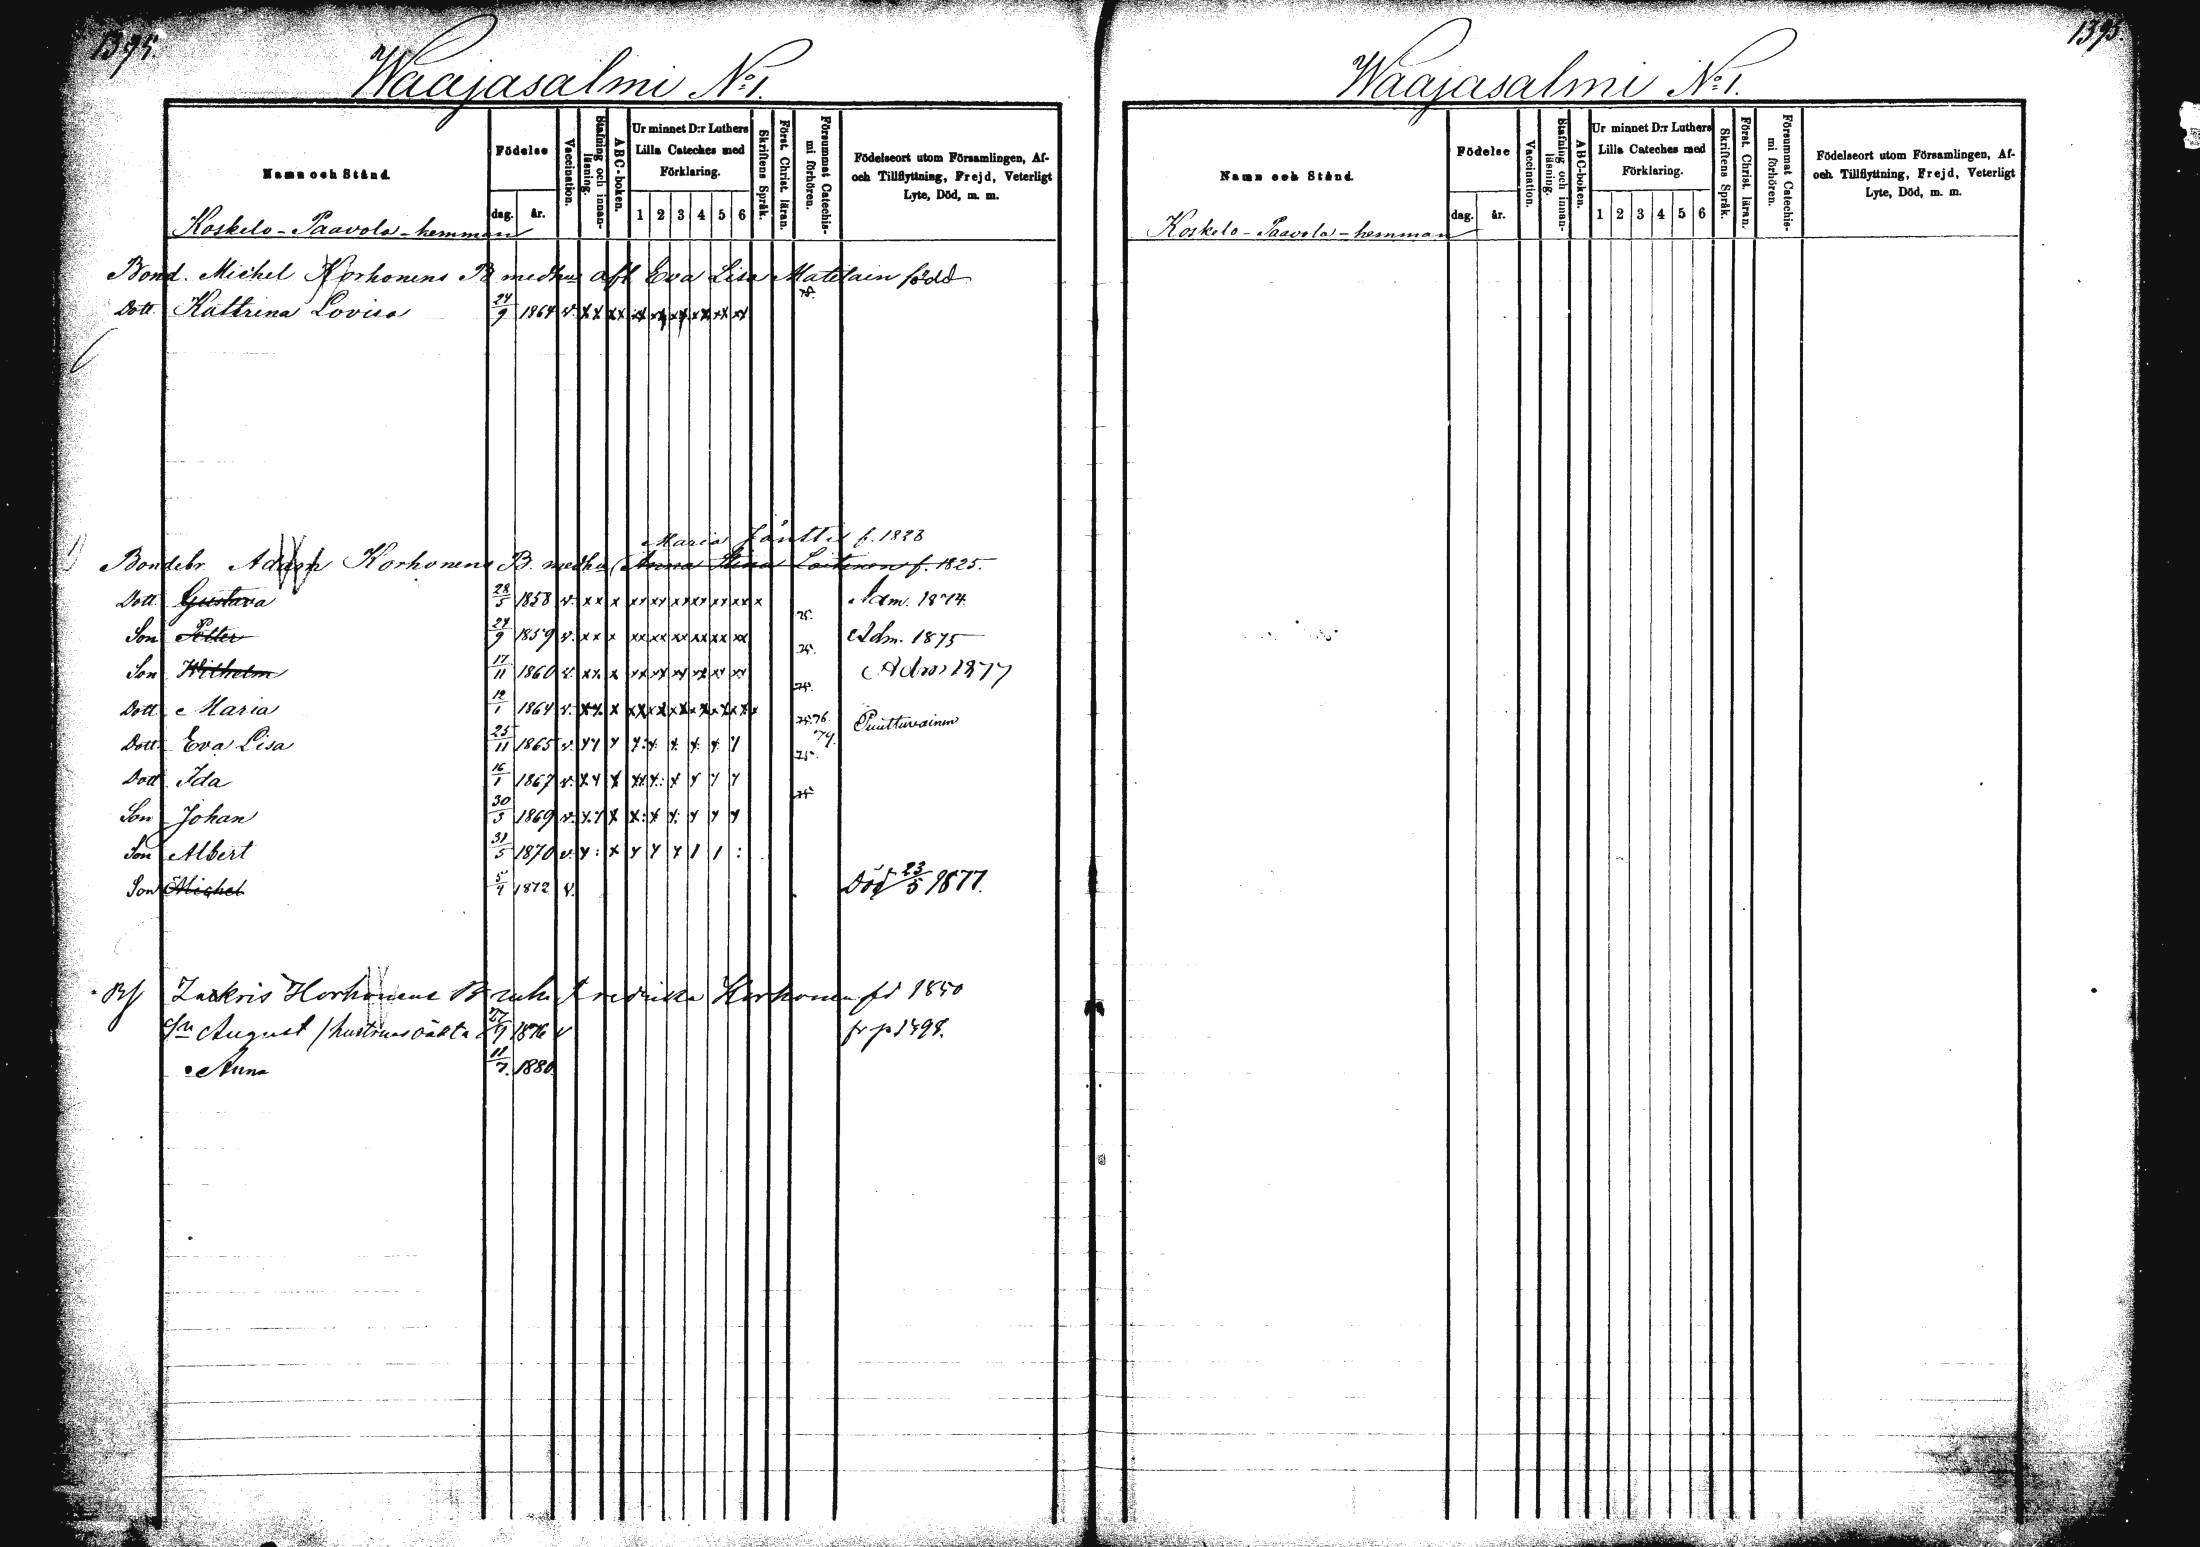 1395.
Waajasalmi No 1.
Namn och Stånd.
Födelse
dag. år.
Vaccination.
Stafning och innanläsning.
ABC-boken.
Ur minnet D:r Luthers Lilla Cateches med Förklaring.
1 2 3 4 5 6
Skriftens Språk.
Först. Christ. läran.
Försummat Catechismi förhören.
Födelseort utom Församlingen, Af- och Tillflyttning, Frejd, Veterligt Lyte, Död, m. m.
Koskelo-Paavola-hemman
Bond. Michel Korhonens B medhu afl Eva Lisa Matilain född
Dott. Kattrina Lovisa 24/9 1864 v.
Maria Jäntti f. 1828
Bondebr. Adam Korhonens B. medhu Anna Stina Loitinen f. 1825.
Dott. Gustava 28/5 1858 v. Adm. 1874
Son Petter 24/9 1859 v. 75. Adm. 1875
Son Wilhelm 17/11 1860 v. 75. Adm 1877
Dott. Maria 12/1 1864 v. 75.
Dott. Eva Lisa 25/11 1865 v. 75.76. 79.
Dott. Ida 16/1 1867 v. 75.
Son Johan 30/3 1869 v. 75
Son Albert 31/5 1870 v.
Son Michel 5/4 1872 v. Död 23/5 1877.
Zakris Korhonens B Fredrika Korhonen fd 1850
Sn August / hustruns oäkta 27/9 1876 v fr p 1498.
Anna 11/7. 1880.
1395.
Waajasalmi No 1.
Namn och Stånd.
Födelse
dag. år.
Vaccination.
Stafning och innanläsning.
ABC-boken.
Ur minnet D:r Luthers Lilla Cateches med Förklaring.
1 2 3 4 5 6
Skriftens Språk.
Först. Christ. läran.
Försummat Catechismi förhören.
Födelseort utom Församlingen, Af- och Tillflyttning, Frejd, Veterligt Lyte, Död, m. m.
Koskelo-Paavola-hemman